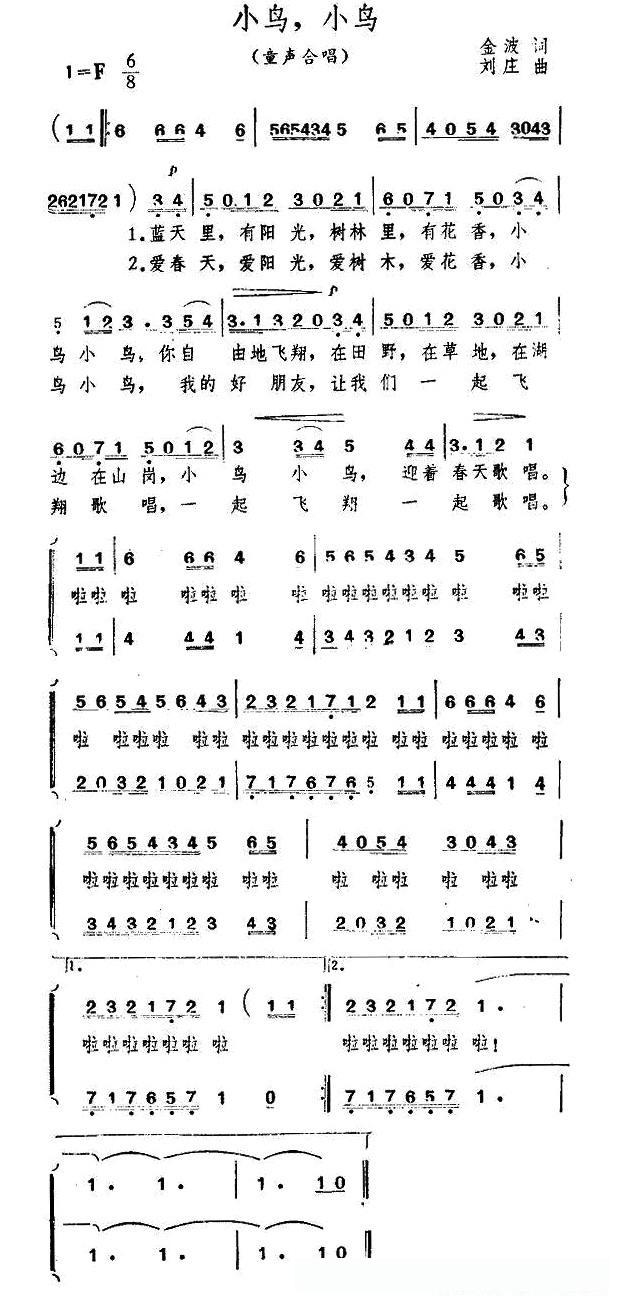 小鸟，小鸟
（童声合唱）
金波 词
1=F 6/8
刘庄 曲
(1 1 |: 6 6 6 4 6 | 5 6 5 4 3 4 5 6 5 | 4 0 5 4 3 0 4 3 |
2 6 2 1 7 2 1 ) p 3 4 | 5 0 1 2 3 0 2 1 | 6 0 7 1 5 0 3 4 |
1.蓝天里，有阳光，树林里，有花香，小
2.爱春天，爱阳光，爱树木，爱花香，小
5 1 2 3 . 3 5 4 | 3 . 1 3 2 0 3 4 | 5 0 1 2 3 0 2 1 |
p
鸟小鸟，你自由地飞翔，在田野，在草地，在湖
鸟小鸟，我的好朋友，让我们一起飞
6 0 7 1 5 0 1 2 | 3 3 4 5 4 4 | 3 . 1 2 1
边在山岗，小鸟小鸟，迎着春天歌唱。
翔歌唱，一起飞翔一起歌唱。
1 1 | 6 6 6 4 6 | 5 6 5 4 3 4 5 6 5 |
啦啦啦 啦啦啦 啦 啦啦啦啦啦啦啦 啦啦
1 1 | 4 4 4 1 4 | 3 4 3 2 1 2 3 4 3 |
5 6 5 4 5 6 4 3 | 2 3 2 1 7 1 2 1 1 | 6 6 6 4 6 |
啦 啦啦啦 啦啦啦啦啦啦啦啦啦 啦啦啦啦啦啦 啦
2 0 3 2 1 0 2 1 | 7 1 7 6 7 6 5 1 1 | 4 4 4 1 4 |
5 6 5 4 3 4 5 6 5 | 4 0 5 4 3 0 4 3
啦啦啦啦啦啦啦 啦啦 啦 啦啦 啦 啦啦
3 4 3 2 1 2 3 4 3 | 2 0 3 2 1 0 2 1
1. 2.
2 3 2 1 7 2 1 ( 1 1 :| 2 3 2 1 7 2 1 .
啦啦啦啦啦啦 啦 啦啦啦啦啦啦 啦！
7 1 7 6 5 7 1 0 :| 7 1 7 6 5 7 1 .
1 . 1 . | 1 . 1 0 ||
1 . 1 . | 1 . 1 0 ||